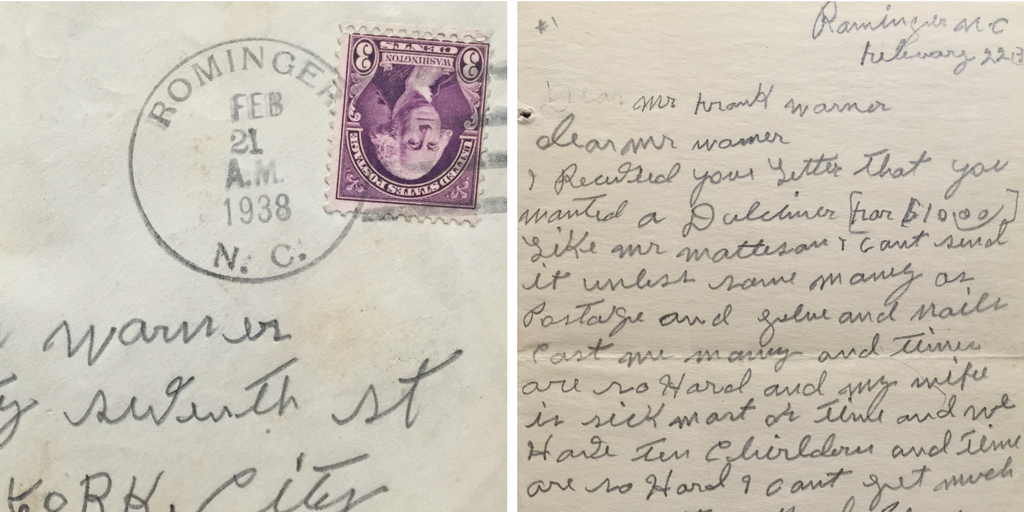 ROMINGER
FEB
21
A.M.
1938
N. C.
3 3
CENTS
WASHINGTON
UNITED STATES POSTAGE
Warner
seventh st
YORK, City
#1
Rominger N C
February 22
Dear Mr Frank Warner
dear mr warner
i Recived your Letter That you
wanted a Dulcimer [for $10.00]
Like mr matteson i Cant send
it unless some money as
Postage and gulue and nails
Cost me money and times
are so Hard and my wife
is sick most of Time and we
Have Ten Chirldern and Time
are so Hard I cant get much